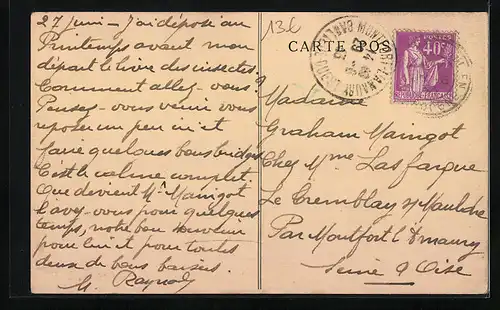 27 Juin - J'ai déposé au
Printemps avant mon
départ le livre des insectes.
Comment allez-vous?
Pensez-vous venir vous
reposer un peu ici et
faire quelques bons bridges
C'est le calme complet.
Que devient Mr Maingot
l'avez-vous pour quelques
temps, notre bon souvenir
pour lui et pour toutes
deux de bons baisers.
M. Raynal
13€
CARTE POS
POSTES
40c
REPUBLIQUE FRANÇAISE
MONTFORT-L'AMAURY
Madame
Graham Maingot
Chez Mme Lasfargue
Le Tremblay s/ Mauldre
Par Montfort l'Amaury
Seine & Oise